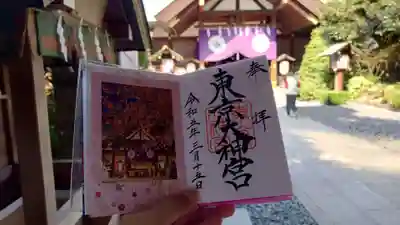 奉拝
東京大神宮
令和五年三月十五日